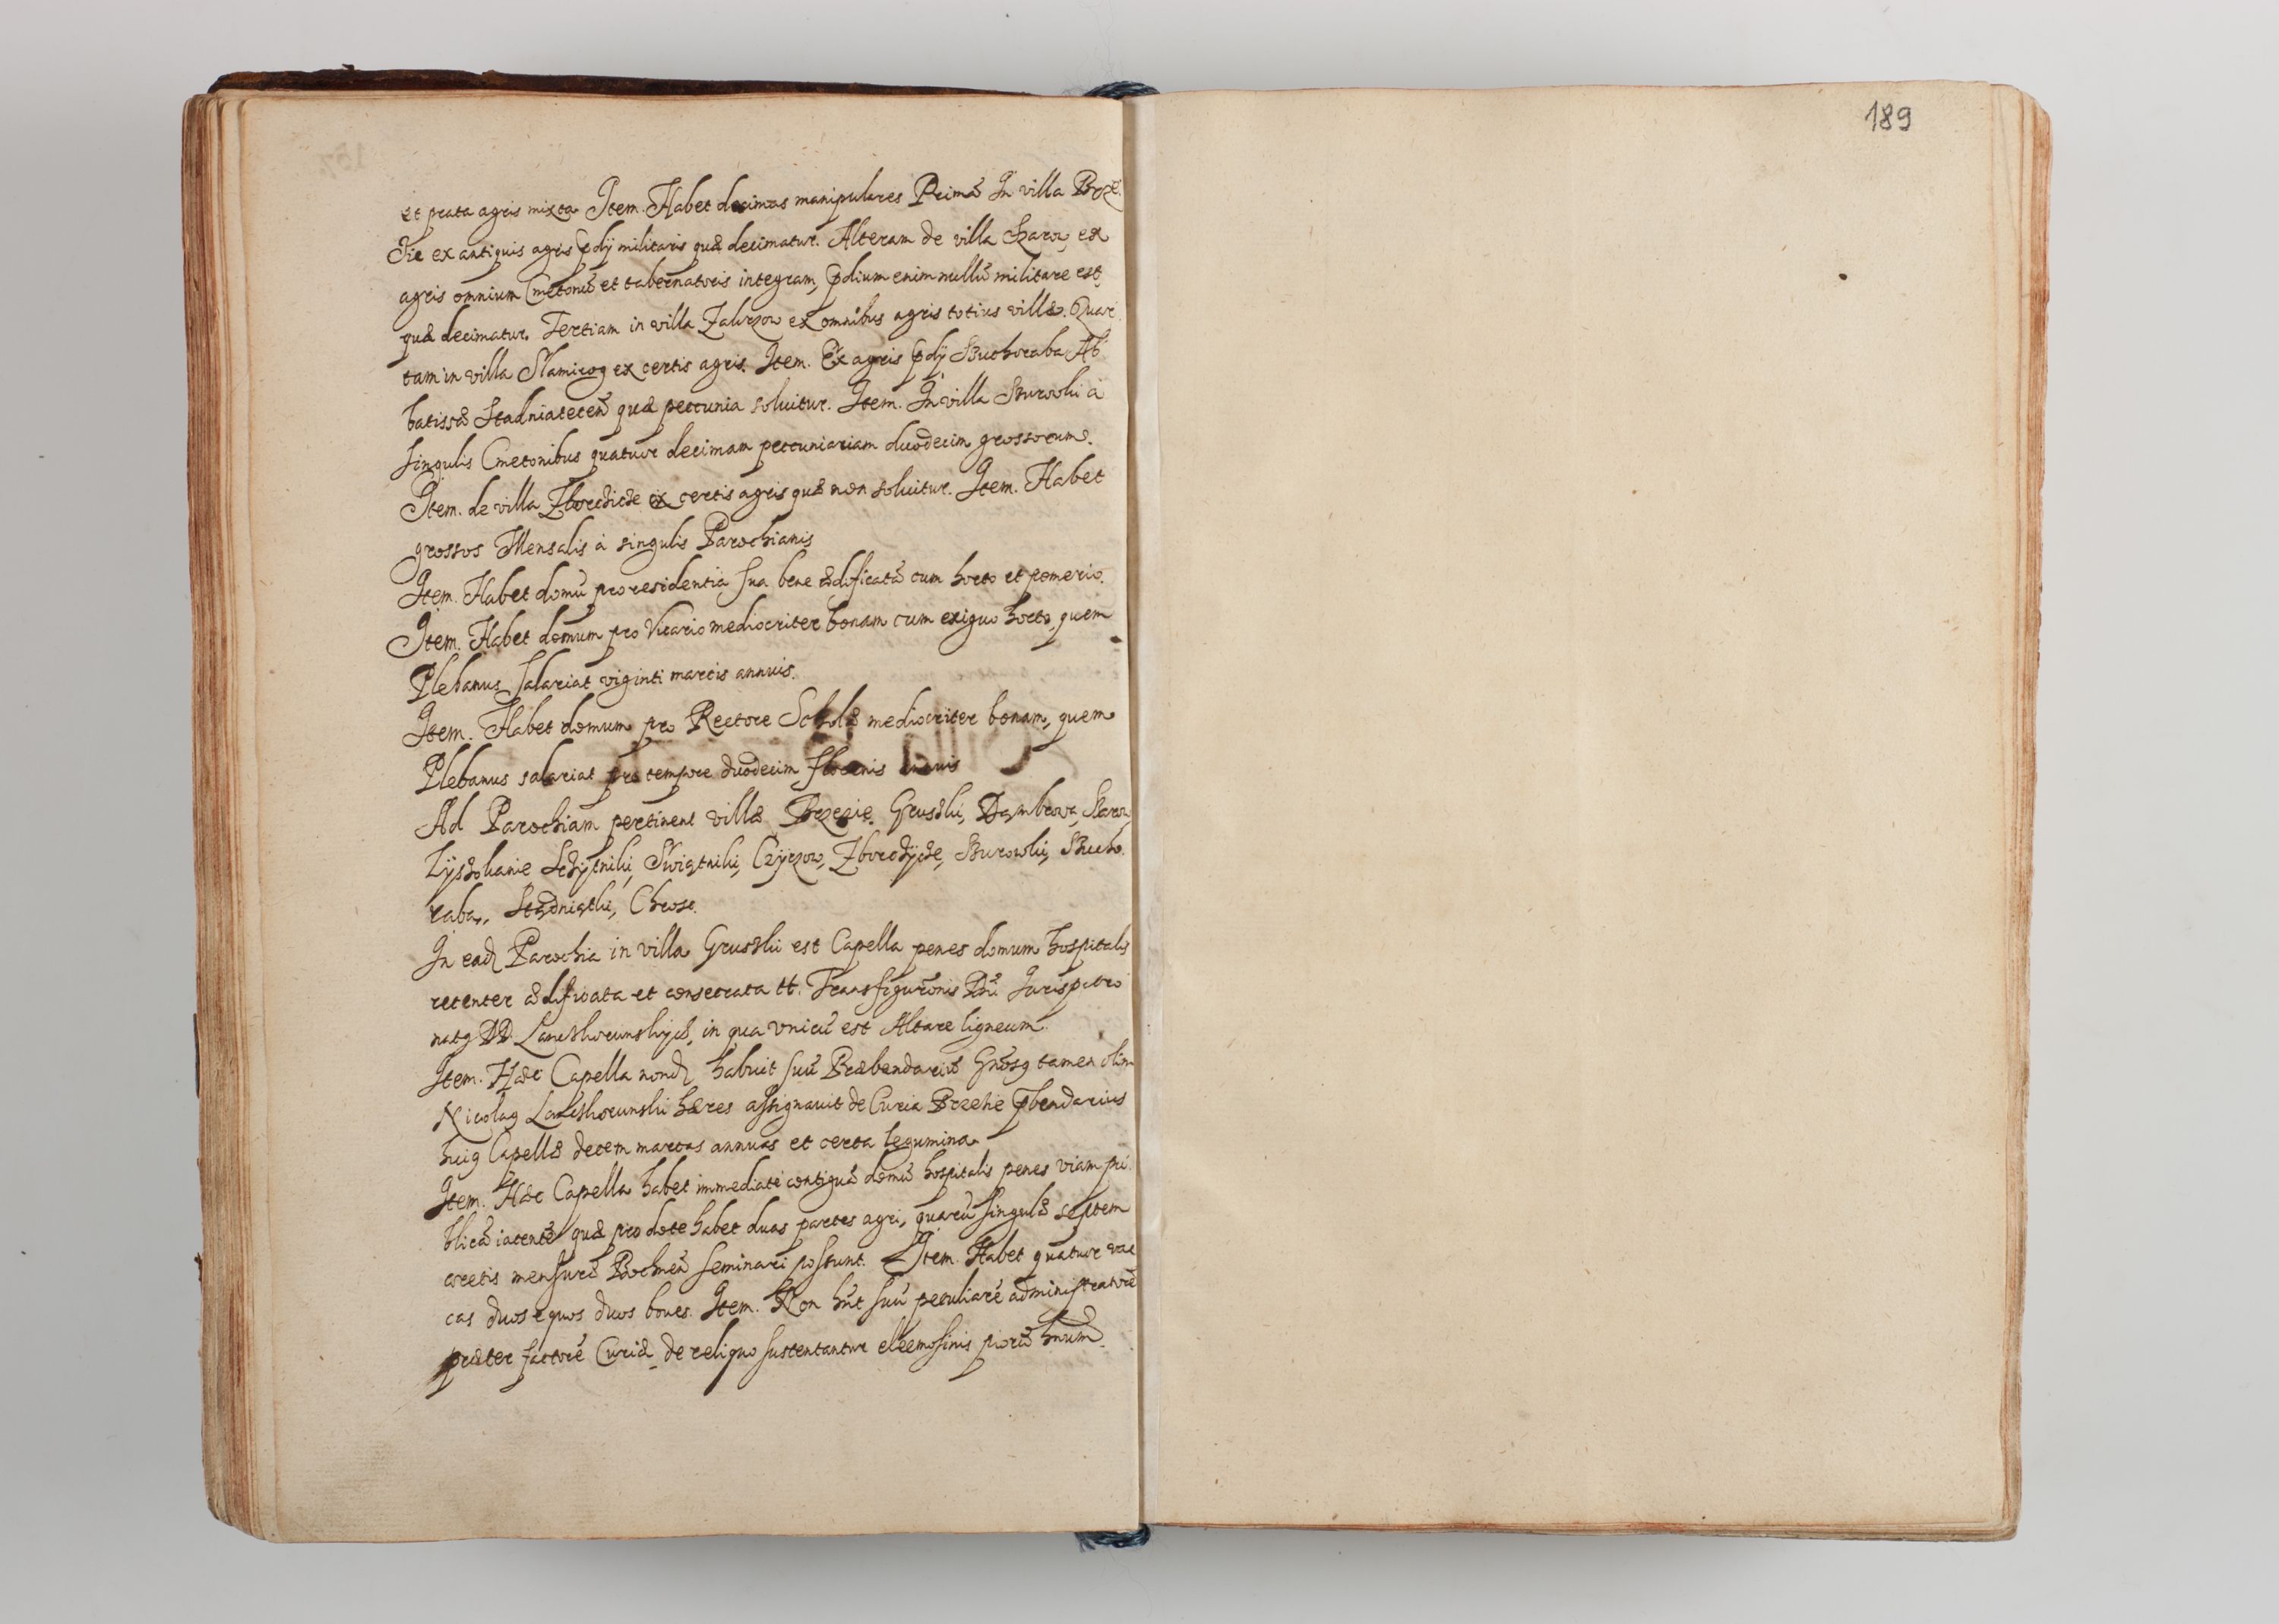 189
et prata agris mixta Item. Habet decimas manipulares Primã In villa Brze
zie ex antiquis agris p̃dij militaris quæ decimatur. Alteram de villa Szarow ex
agris omnium Cmetonũ et tabernatoris integram, p̃dium enim nullũ militare est,
quæ decimatur. Tertiam in villa Zakrzow ex omnibus agris totius villæ. Quar
tam in villa Słamirog ex certis agris. Item. Ex agris p̃dij Suchoraba Ab
batissæ Stadniatecẽ quæ peccunia soluitur. Item. In villa Surowki à
singulis Cmetonibus quatuor decimam peccuniariam duodecim grossorum.
Item. de villa Zborcżicże ex certis agris quæ non soluitur. Item. Habet
grossos Mensalis à singulis Parochianis
Item. Habet domũ pro residentia sua bene ædificatã cum horto et pomerio.
Item. Habet domum pro Vicario mediocriter bonam cum exiguo horto, quem
Plebanus salariat viginti marcis annuis.
Item. Habet domum pro Rectore Scholæ mediocriter bonam, quem
Plebanus salariat pro tempore duodecim florenis annuis
Ad Parochiam pertinent villæ Brzezie, Gruszki, Dąmbrowa, Szarow,
Łysżokanie Sczytniki, Swiątniki, Czyżow, Zborcżycże, Surowki, Sucho
raba, Stadniąthi, Chrosc.
In ead Parochia in villa Gruszki est Capella penes domum hospitalis
recenter ædificata et consecrata tt. Transfigurõnis Dñi Juris patro
natg DD. Lanczkorunskyċh, in qua vnicũ est Altare ligneum.
Item. Hæc Capella nond habuit suũ Præbendariũ Gñosg tamen olim
Nicolag Lanczkorunski hæres assignauit de Curia Brzezie p̃bendarius
huig Capellæ decem marcas annuas et certa legumina.
Item. Hæc Capella habet immediate contiguã domũ hospitalis penes viam pu
blicã iacentẽ quæ pro dote habet duas partes agri, quarũ singulæ septem
coretis mensuræ Bochneñ seminari possunt. Item. Habet quatuor vac
cas duos equos duos boues. Item. Non hñt suũ peculiarẽ administratorẽ
præter factorẽ Curiæ de reliquo sustentantur eleemosinis piorũ hoĩnum.